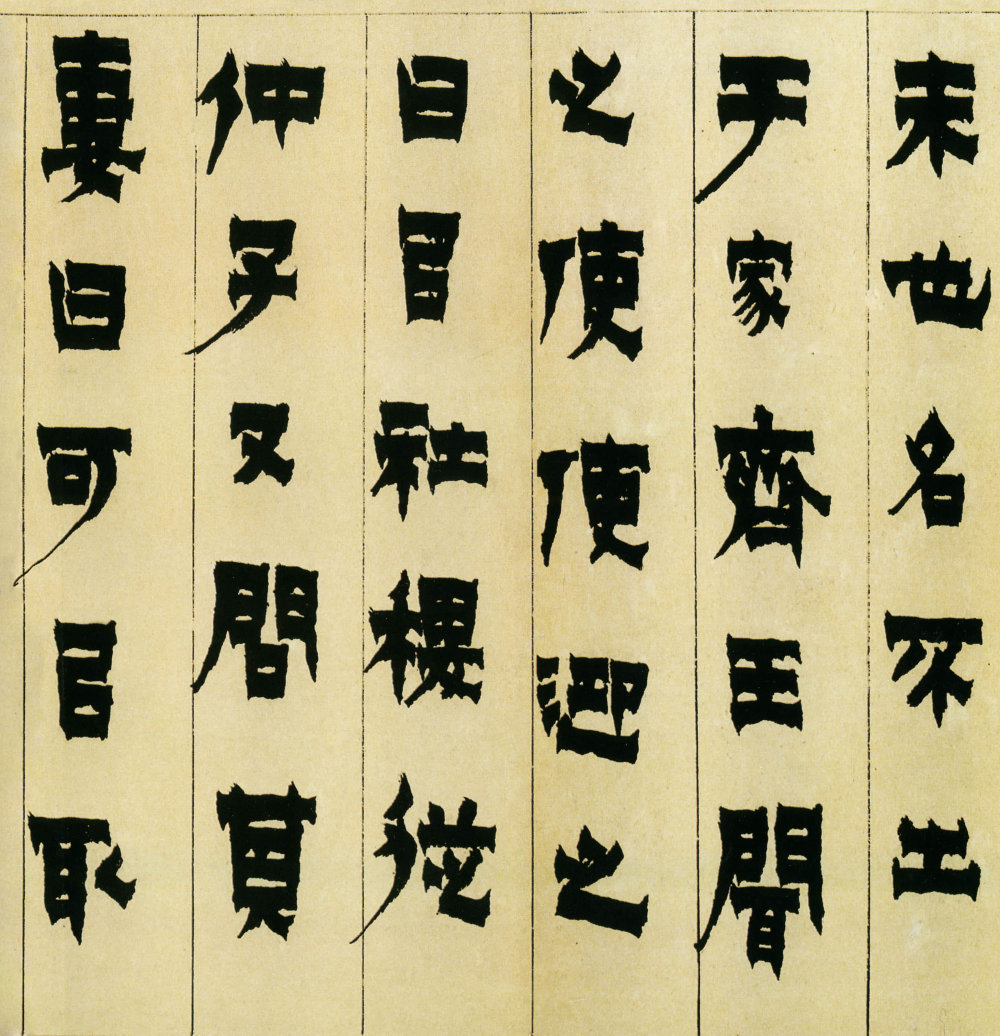 未也名不出
于家齊王聞
之使使迎之
曰社稷從
仲子又問其
妻曰可㠯取